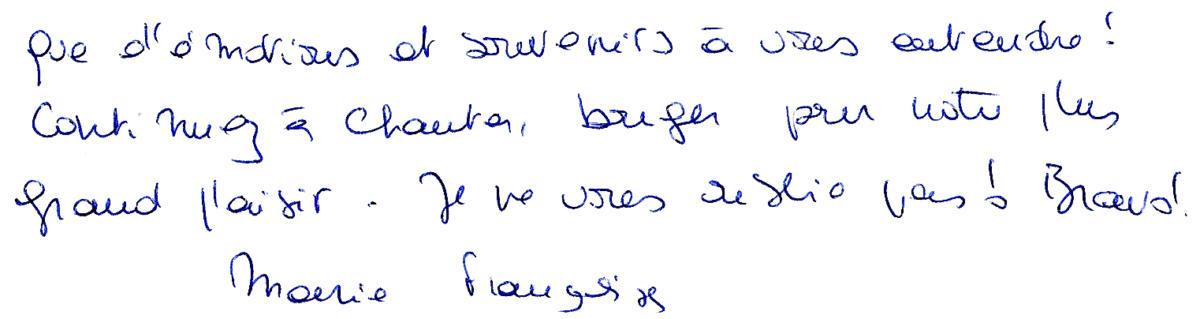 Que d'émotions et souvenirs à vous entendre !
Continuez à chanter, bouger pour notre plus
grand plaisir. Je ne vous oublie pas ! Bravo !
Marie Françoise